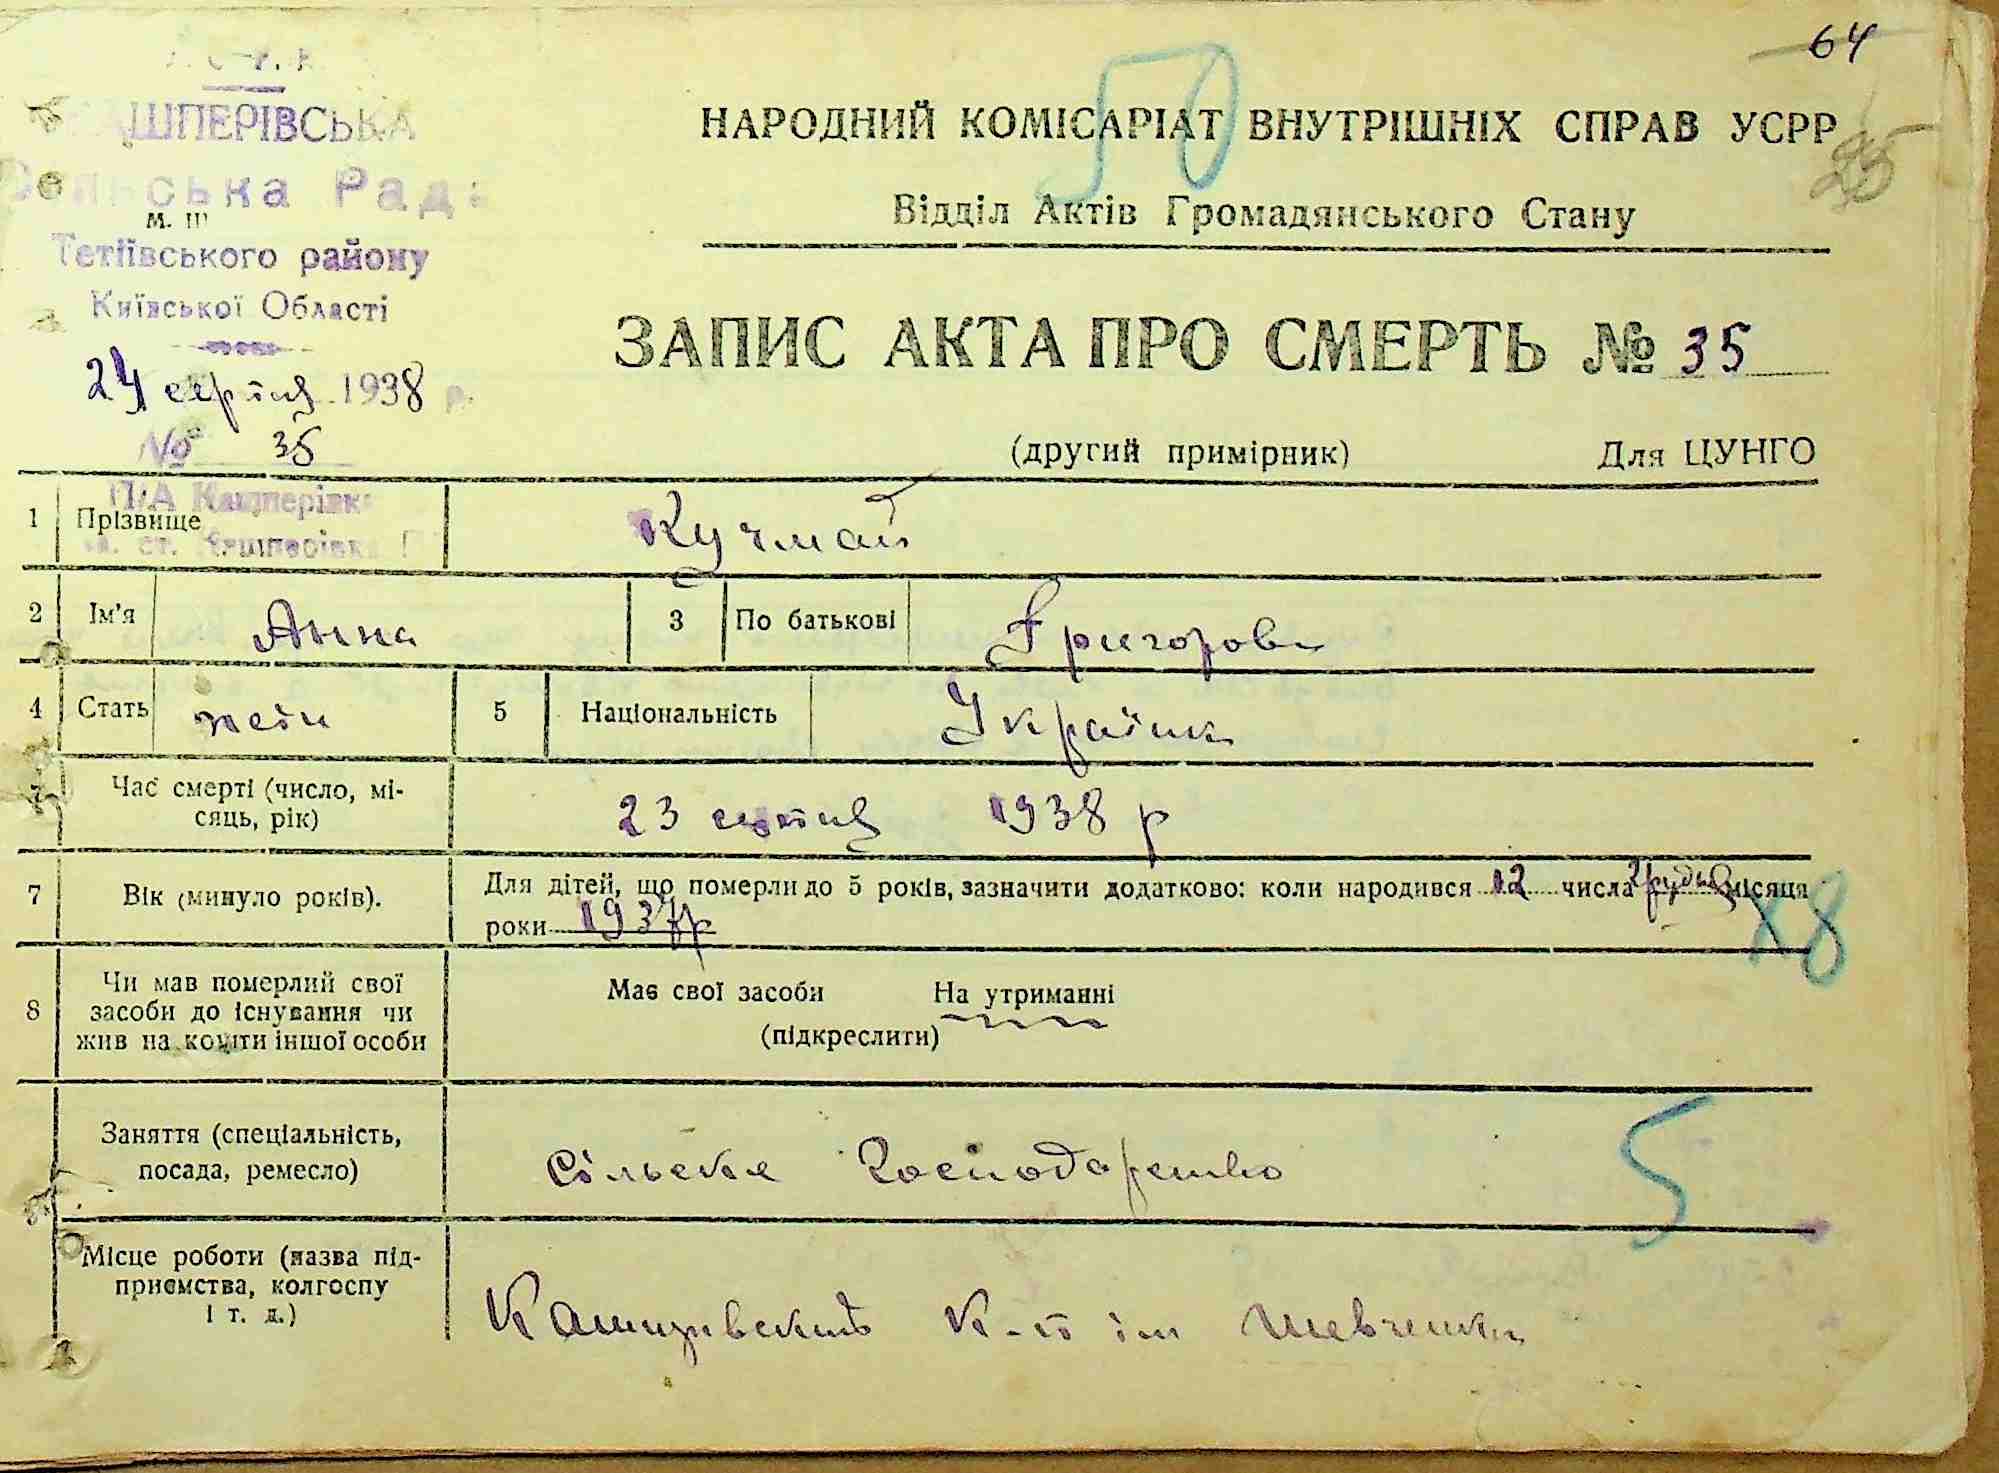 64
НАРОДНИЙ КОМІСАРІАТ ВНУТРІШНІХ СПРАВ УСРР
50
25
Відділ Актів Громадянського Стану
КАШПЕРІВСЬКА
Сільська Рада
М. Ш
Тетіївського району
Київської Області
24 серпня 1938 р.
№ 35
ЗАПИС АКТА ПРО СМЕРТЬ № 35
(другий примірник) Для ЦУНГО
П/А Кашперівка
1 Прізвище Кучмай
2 Ім'я Анна 3 По батькові Григоровн
4 Стать жін 5 Національність Українк
Час смерті (число, мі-
сяць, рік) 23 1938 р
7 Вік (минуло років). Для дітей, що померли до 5 років, зазначити додатково: коли народився 12 числа грудня місяця
роки 1937р
88
8 Чи мав померлий свої
засоби до існування чи
жив на кошти іншої особи
Має свої засоби На утриманні
(підкреслити)
Заняття (спеціальність,
посада, ремесло) Сільське Господарство
5
Місце роботи (назва під-
приємства, колгоспу
і т. д.)
К-п ім Шевченка